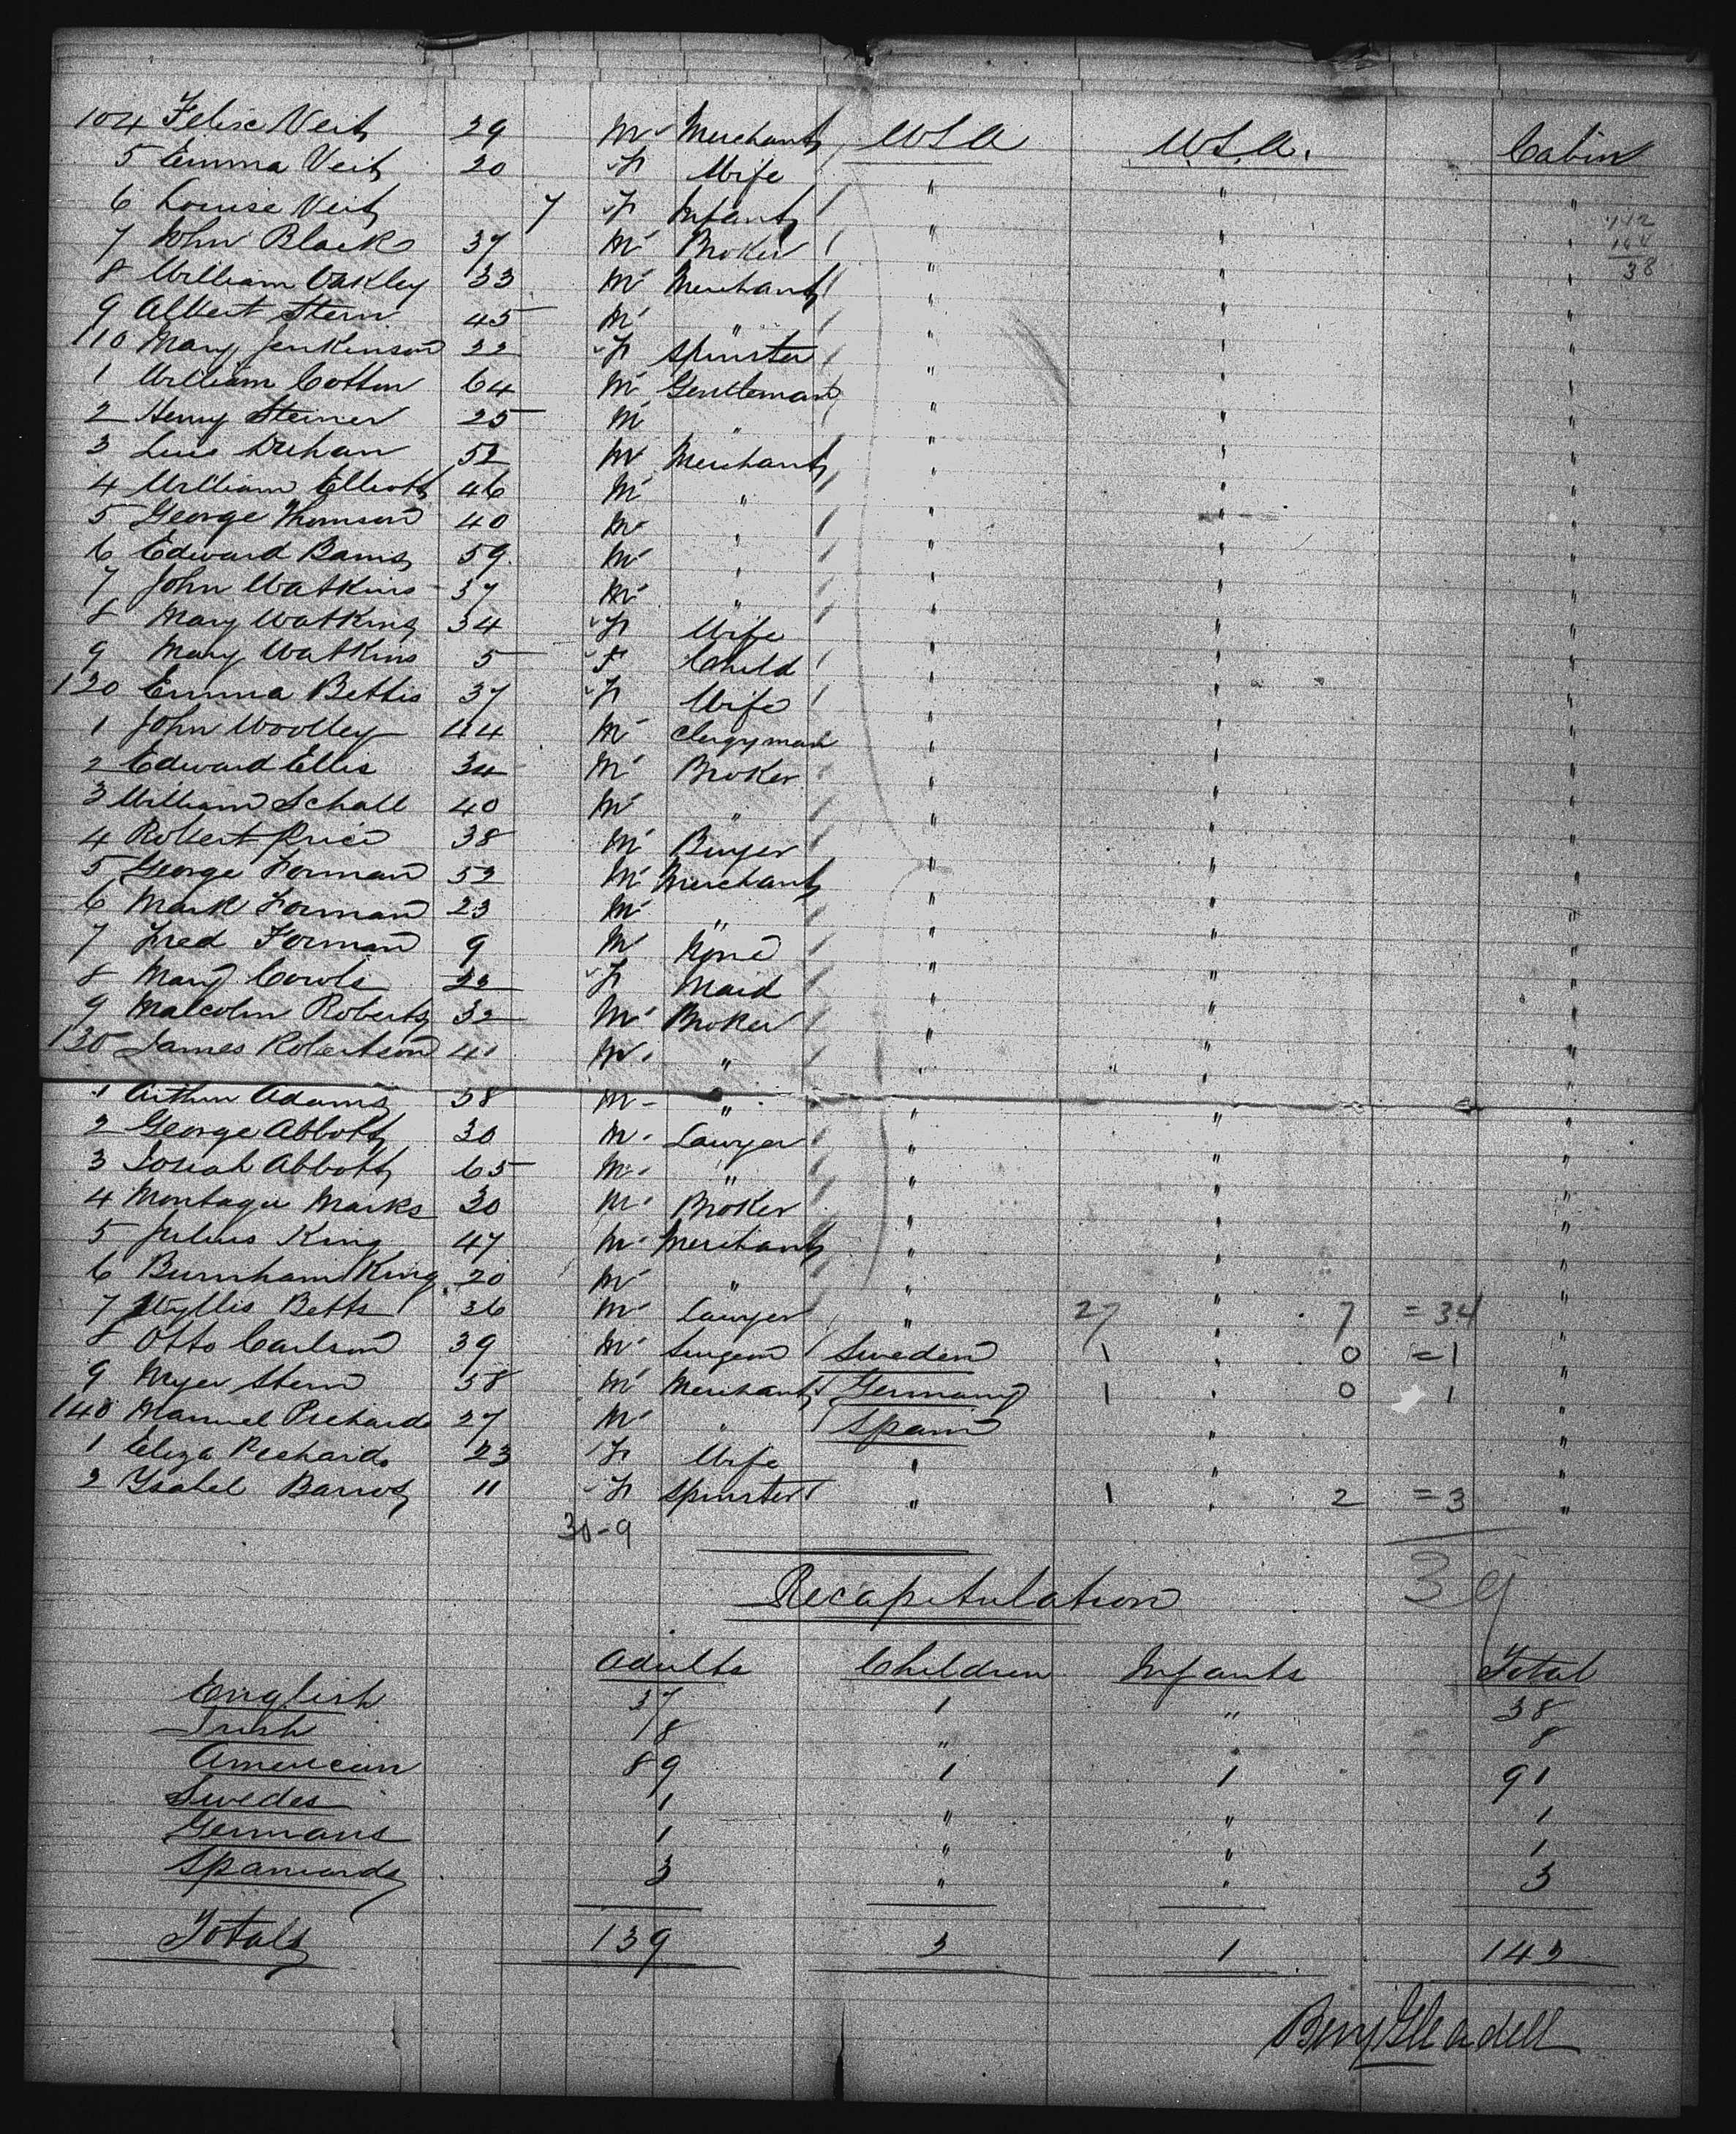 104 Felix Veit 29 M Merchant USA U.S.A. Cabin
5 Emma Veit 20 F Wife " " "
6 Louise Veit 7 F Infant " " "
7 John Black 37 M Broker " " "
8 William Oakley 33 M Merchant " " "
9 Albert Stern 45 M " " " "
110 Mary Jenkinson 22 F Spinster " " "
1 William Cotton 64 M Gentleman " " "
2 Henry Steiner 25 M " " " "
3 52 M Merchant " " "
4 William Elliott 46 M " " " "
5 George Thomson 40 M " " " "
6 Edward 59 M " " " "
7 John Watkins 37 M " " " "
8 Mary Watkins 34 F Wife " " "
9 Mary Watkins 5 F Child " " "
120 Emma Bettis 37 F Wife " " "
1 John Woolley 44 M Clergyman " " "
2 Edward Ellis 34 M Broker " " "
3 William Schall 40 M " " " "
4 Robert Price 38 M Buyer " " "
5 George Forman 52 M Merchant " " "
6 Mark Forman 23 M " " " "
7 Fred Forman 9 M None " " "
8 Mary Cowls 22 F Maid " " "
9 Malcolm Roberts 32 M Broker " " "
130 James Robertson 41 M " " " "
1 Arthur Adams 38 M " " " "
2 George Abbott 30 M Lawyer " " "
3 Josiah Abbott 65 M " " " "
4 Montague Marks 30 M Broker " " "
5 Julius King 47 M Merchant " " "
6 Burnham King 20 M " " " "
7 Wyllis Betts 36 M Lawyer " 27 " 7 = 34 "
8 Otto Carlson 39 M Surgeon Sweden 1 " 0 = 1 "
9 Myer Stern 38 M Merchant Germany 1 " 0 1 "
140 Manuel Pichardo 27 M " Spain " "
1 Eliza Pichardo 23 F Wife " " "
2 Ysabel 11 F Spinster " 1 " 2 = 3 "
30-9
39
Recapitulation
Adults Children Infants Total
English 37 1 " 38
Irish 8 " " 8
American 89 1 1 91
Swedes 1 " " 1
Germans 1 " " 1
Spaniards 3 " " 3
Totals 139 2 1 142
Benj Gleadell